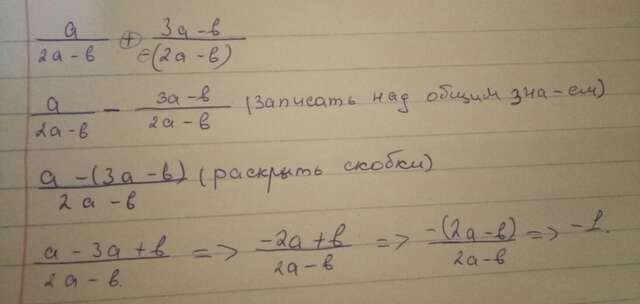 a/(2a-в) ⊕ (3a-в)/(-(2a-в))
a/(2a-в) - (3a-в)/(2a-в) (записать над общим зна-ем)
(a-(3a-в))/(2a-в) (раскрыть скобки)
(a-3a+в)/(2a-в.) => (-2a+в)/(2a-в) => (-(2a-в))/(2a-в) => -1.